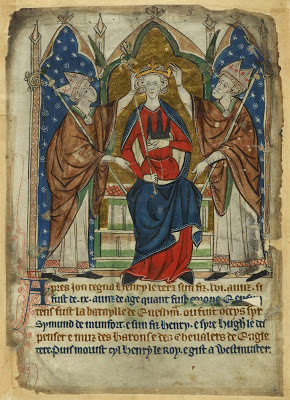 Apres Jon regna Henry le terz sun fiz .lvi. aunz. si
fust de .ix. aunz de age quant fust corone. En su
tens fust la bataylle de Evesham. ou fust occys syr
Symund de munfort. e sun fiz Henry. e syre Hugh le de
penser e muz des barons e des Chevalers de Engle
tere. Puis morust cyl Henry le Roy. e gist a Westmuster.